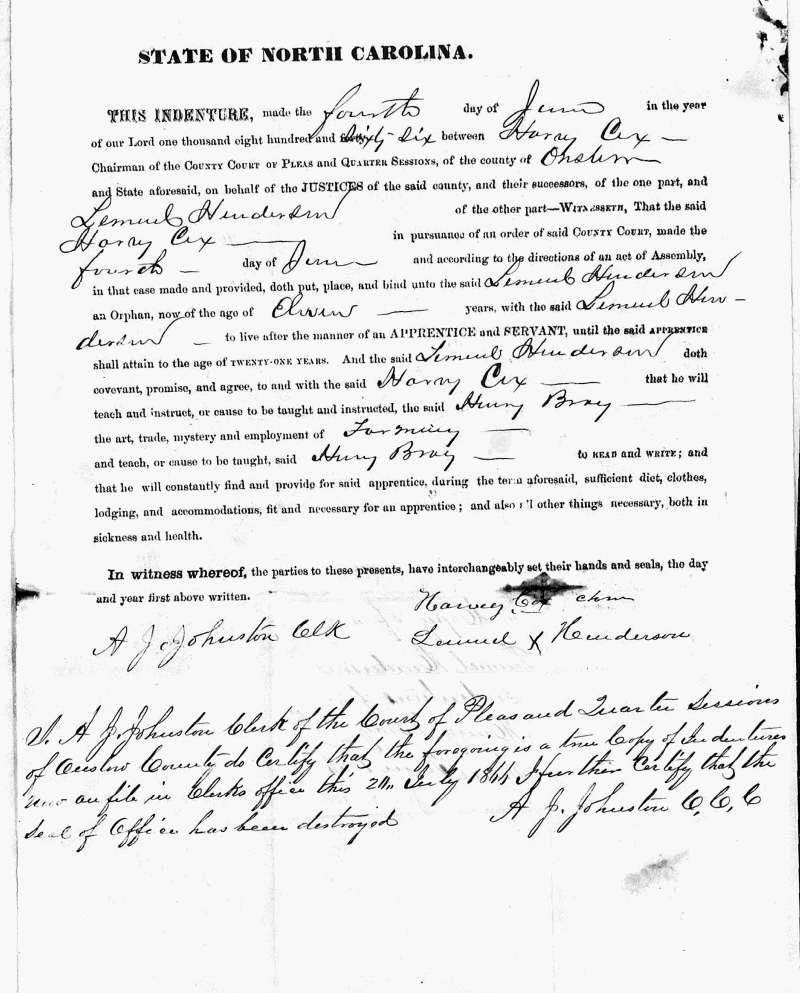 STATE OF NORTH CAROLINA.
THIS INDENTURE, made the fourth day of June in the year
of our Lord one thousand eight hundred and sixty-six between Harvy Cox
Chairman of the COUNTY COURT OF PLEAS and QUARTER SESSIONS, of the county of Onslow
and State aforesaid, on behalf of the JUSTICES of the said county, and their successors, of the one part, and
Lemuel Henderson of the other part—WITNESSETH, That the said
Harvy Cox in pursuance of an order of said COUNTY COURT, made the
fourth day of June and according to the directions of an act of Assembly,
in that case made and provided, doth put, place, and bind unto the said Lemuel Henderson
an Orphan, now of the age of Eleven years, with the said Lemuel Hen-
derson to live after the manner of an APPRENTICE and SERVANT, until the said APPRENTICE
shall attain to the age of TWENTY-ONE YEARS. And the said Lemuel Henderson doth
covevant, promise, and agree, to and with the said Harvy Cox that he will
teach and instruct, or cause to be taught and instructed, the said Henry Bray
the art, trade, mystery and employment of Farming
and teach, or cause to be taught, said Henry Bray to READ and WRITE; and
that he will constantly find and provide for said apprentice, during the term aforesaid, sufficient diet, clothes,
lodging, and accommodations, fit and necessary for an apprentice; and also all other things necessary, both in
sickness and health.
In witness whereof, the parties to these presents, have interchangeably set their hands and seals, the day
and year first above written.
Harvey Cox chm
A J. Johnston Clk Lemuel X Henderson
I. A J. Johnston Clerk of the Court of Pleas and Quarter Sessions
of Onslow County do Certify that the foregoing is a true Copy of Indentures
now on file in Clerks office this July I further Certify that the
Seal of Office has been destroyed A J. Johnston C,C,C